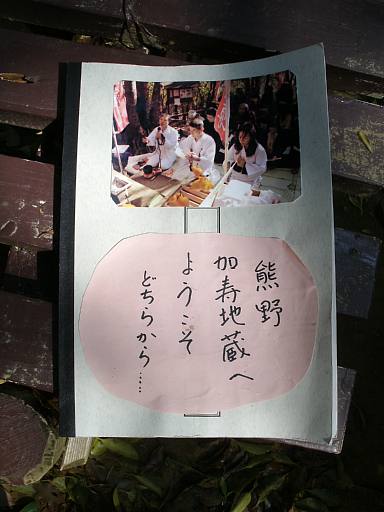 熊野
加寿地蔵へ
ようこそ
どちらから……